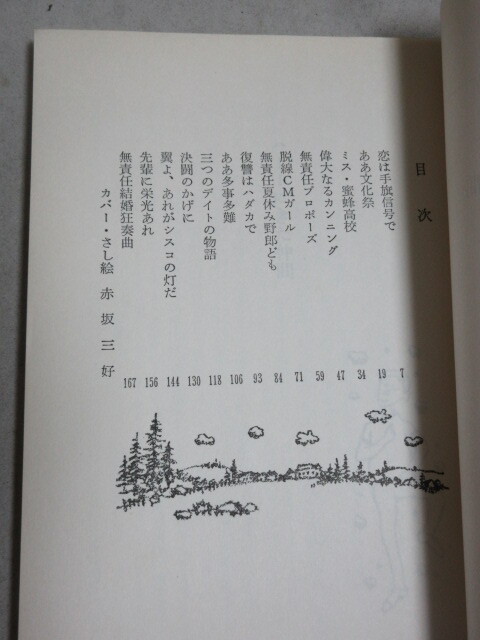 目次
恋は手旗信号で 7
ああ文化祭 19
ミス・蜜蜂高校 34
偉大なるカンニング 47
無責任プロポーズ 59
脱線CMガール 71
無責任夏休み野郎ども 84
復讐はハダカで 93
ああ多事多難 106
三つのデイトの物語 118
決闘のかげに 130
翼よ、あれがシスコの灯だ 144
先輩に栄光あれ 156
無責任結婚狂奏曲 167
カバー・さし絵 赤坂三好